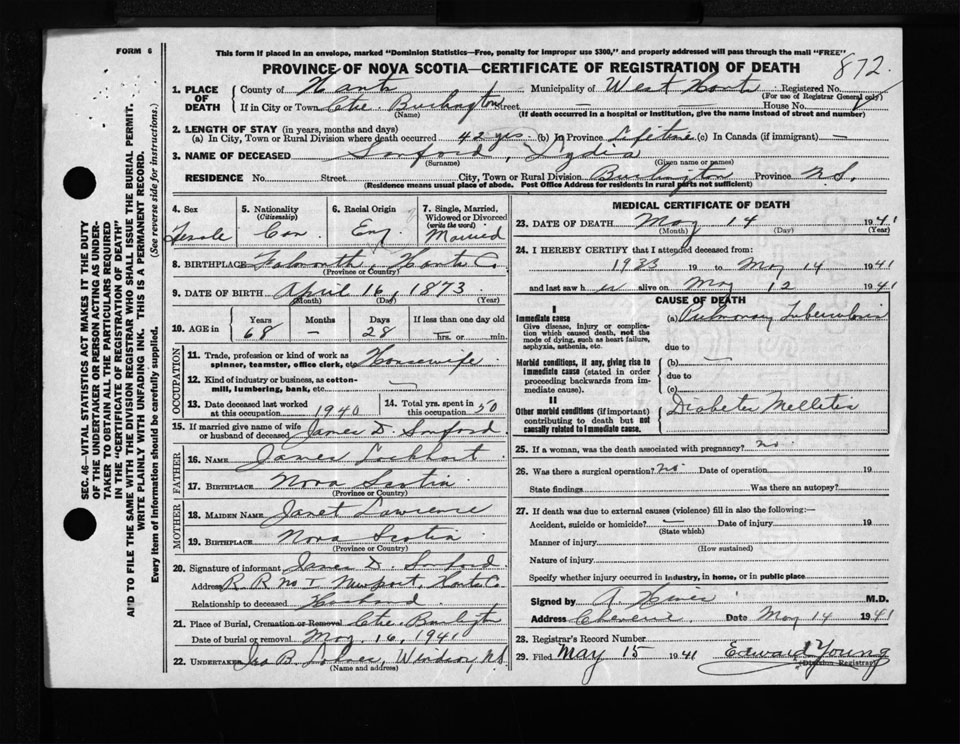 FORM 6
This form if placed in an envelope, marked "Dominion Statistics—Free, penalty for improper use $300," and properly addressed will pass through the mail "FREE"
PROVINCE OF NOVA SCOTIA—CERTIFICATE OF REGISTRATION OF DEATH
872
1. PLACE OF DEATH
County of Hants Municipality of West Hants Registered No.
(For use of Registrar General only)
If in City or Town Ctre Burlington Street — House No.
(Name) (If death occurred in a hospital or institution, give the name instead of street and number)
2. LENGTH OF STAY (in years, months and days)
(a) In City, Town or Rural Division where death occurred 42 yrs. (b) In Province Lifetime (c) In Canada (if immigrant) —
3. NAME OF DECEASED Sanford, Lydia
(Surname) (Given name or names)
RESIDENCE No. Street City, Town or Rural Division Burlington Province N.S.
(Residence means usual place of abode. Post Office Address for residents in rural parts not sufficient)
4. Sex Female
5. Nationality (Citizenship) Can
6. Racial Origin Eng
7. Single, Married, Widowed or Divorced (write the word) Married
8. BIRTHPLACE Falmouth, Hants Co.
(Province or Country)
9. DATE OF BIRTH April 16, 1873
(Month) (Day) (Year)
10. AGE in Years Months Days If less than one day old
68 — 28 hrs. or min.
OCCUPATION
11. Trade, profession or kind of work as spinner, teamster, office clerk, etc. Housewife
12. Kind of industry or business, as cotton-mill, lumbering, bank, etc. —
13. Date deceased last worked at this occupation 1940
14. Total yrs. spent in this occupation 50
15. If married give name of wife or husband of deceased James D. Sanford
FATHER
16. NAME James Lockhart
17. BIRTHPLACE Nova Scotia
(Province or Country)
MOTHER
18. MAIDEN NAME Janet Lawrence
19. BIRTHPLACE Nova Scotia
(Province or Country)
20. Signature of informant James D. Sanford
Address R. R. No 1 Newport, Hants Co.
Relationship to deceased Husband
21. Place of Burial, Cremation or Removal Ctre. Burlington
Date of burial or removal May 16, 1941
22. UNDERTAKER B. Windsor, N.S.
(Name and address)
MEDICAL CERTIFICATE OF DEATH
23. DATE OF DEATH May 14 1941
(Month) (Day) (Year)
24. I HEREBY CERTIFY that I attended deceased from:
1933 19 to May 14 1941
and last saw her alive on May 12 1941
CAUSE OF DEATH
I
Immediate cause
Give disease, injury or complication which caused death, not the mode of dying, such as heart failure, asphyxia, asthenia, etc.
(a) Pulmonary Tuberculosis
due to
Morbid conditions, if any, giving rise to immediate cause (stated in order proceeding backwards from immediate cause).
(b) —
due to
(c)
II
Other morbid conditions (if important) contributing to death but not causally related to immediate cause.
Diabetes Mellitis
25. If a woman, was the death associated with pregnancy? no
26. Was there a surgical operation? no Date of operation 19
State findings Was there an autopsy?
27. If death was due to external causes (violence) fill in also the following:—
Accident, suicide or homicide? — Date of injury 19
(State which)
Manner of injury
(How sustained)
Nature of injury
Specify whether injury occurred in industry, in home, or in public place
Signed by A M.D.
Address Cheverie Date May 14 1941
28. Registrar's Record Number
29. Filed May 15 1941 Edward Young
(Division Registrar)
SEC. 46—VITAL STATISTICS ACT MAKES IT THE DUTY
OF THE UNDERTAKER OR PERSON ACTING AS UNDER-
TAKER TO OBTAIN ALL THE PARTICULARS REQUIRED
IN THE "CERTIFICATE OF REGISTRATION OF DEATH"
AND TO FILE THE SAME WITH THE DIVISION REGISTRAR WHO SHALL ISSUE THE BURIAL PERMIT.
WRITE PLAINLY WITH UNFADING INK. THIS IS A PERMANENT RECORD.
Every item of information should be carefully supplied. (See reverse side for instructions.)